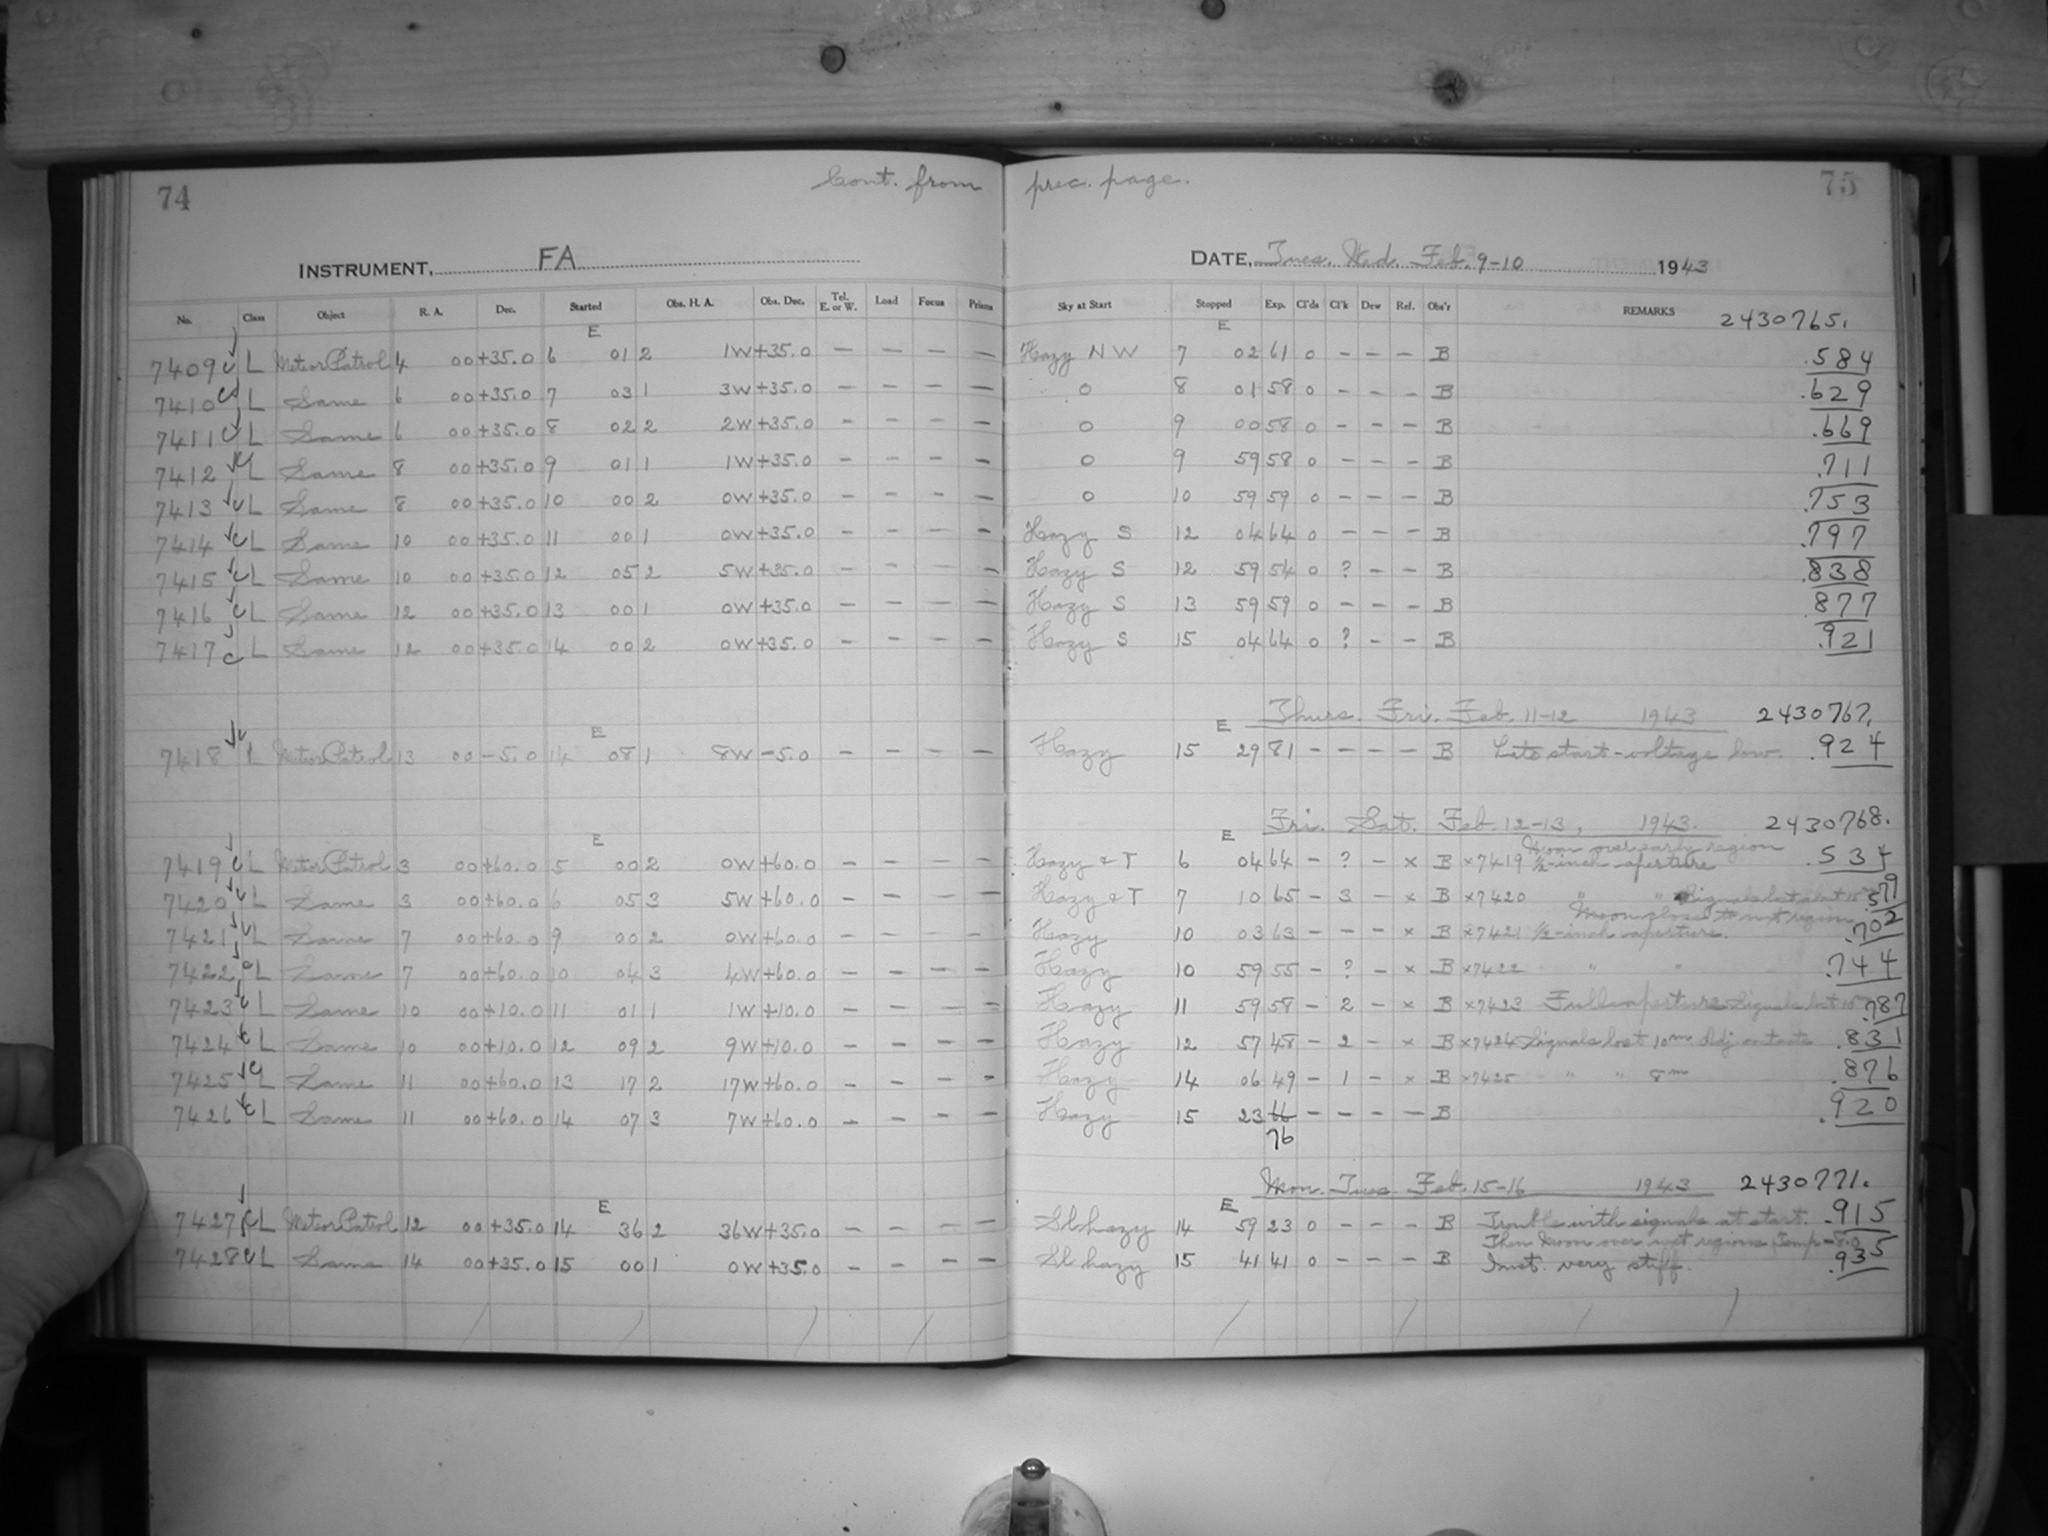 74 Cont. from prec. page. 75
INSTRUMENT, FA DATE, Tues. Wed. Feb. 9-10 1943
No. Class Object R. A. Dec. Started Obs. H. A. Obs. Dec. Tel. E. or W. Load Focus Prisms Sky at Start Stopped Exp. Cl'ds Cl'k Dew Ref. Obs'r REMARKS 2430765.
E E
7409 L Meteor Patrol 4 00 +35.0 6 01 2 1W +35.0 — — — — Hazy NW 7 02 61 0 — — — B .584
7410 L Same 6 00 +35.0 7 03 1 3W +35.0 — — — — 0 8 01 58 0 — — — B .629
7411 L Same 6 00 +35.0 8 02 2 2W +35.0 — — — — 0 9 00 58 0 — — — B .669
7412 L Same 8 00 +35.0 9 01 1 1W +35.0 — — — — 0 9 59 58 0 — — — B .711
7413 L Same 8 00 +35.0 10 00 2 0W +35.0 — — — — 0 10 59 59 0 — — — B .753
7414 L Same 10 00 +35.0 11 00 1 0W +35.0 — — — — Hazy S 12 04 64 0 — — — B .797
7415 L Same 10 00 +35.0 12 05 2 5W +35.0 — — — — Hazy S 12 59 54 0 ? — — B .838
7416 L Same 12 00 +35.0 13 00 1 0W +35.0 — — — — Hazy S 13 59 59 0 — — — B .877
7417 L Same 12 00 +35.0 14 00 2 0W +35.0 — — — — Hazy S 15 04 64 0 ? — — B .921
E E Thurs. Fri. Feb. 11-12 1943 2430767.
7418 L Meteor Patrol 13 00 -5.0 14 08 1 8W -5.0 — — — — Hazy 15 29 81 — — — — B Late start - voltage low. .924
E E Fri. Sat. Feb. 12-13, 1943. 2430768.
Moon over early region
7419 L Meteor Patrol 3 00 +60.0 5 00 2 0W +60.0 — — — — Hazy & T 6 04 64 — ? — x B x7419 ½-inch aperture .534
7420 L Same 3 00 +60.0 6 05 3 5W +60.0 — — — — Hazy & T 7 10 65 — 3 — x B x7420 " " Signals lost about 15m .579
Moon close to next region
7421 L Same 7 00 +60.0 9 00 2 0W +60.0 — — — — Hazy 10 03 63 — — — x B x7421 ½-inch aperture. .702
7422 L Same 7 00 +60.0 10 04 3 4W +60.0 — — — — Hazy 10 59 55 — ? — x B x7422 " " .744
7423 L Same 10 00 +10.0 11 01 1 1W +10.0 — — — — Hazy 11 59 58 — 2 — x B x7423 Full aperture Signals lost 15m .787
7424 L Same 10 00 +10.0 12 09 2 9W +10.0 — — — — Hazy 12 57 48 — 2 — x B x7424 Signals lost 10m Adj. contacts .831
7425 L Same 11 00 +60.0 13 17 2 17W +60.0 — — — — Hazy 14 06 49 — 1 — x B x7425 " " 8m .876
7426 L Same 11 00 +60.0 14 07 3 7W +60.0 — — — — Hazy 15 23 66 — — — — B .920
76
E E Mon. Tues. Feb. 15-16 1943 2430771.
7427 L Meteor Patrol 12 00 +35.0 14 36 2 36W +35.0 — — — — Sl hazy 14 59 23 0 — — — B Trouble with signals at start. .915
Then Moon over next regions Temp -8.0
7428 L Same 14 00 +35.0 15 00 1 0W +35.0 — — — — Sl hazy 15 41 41 0 — — — B Inst. very stiff. .935